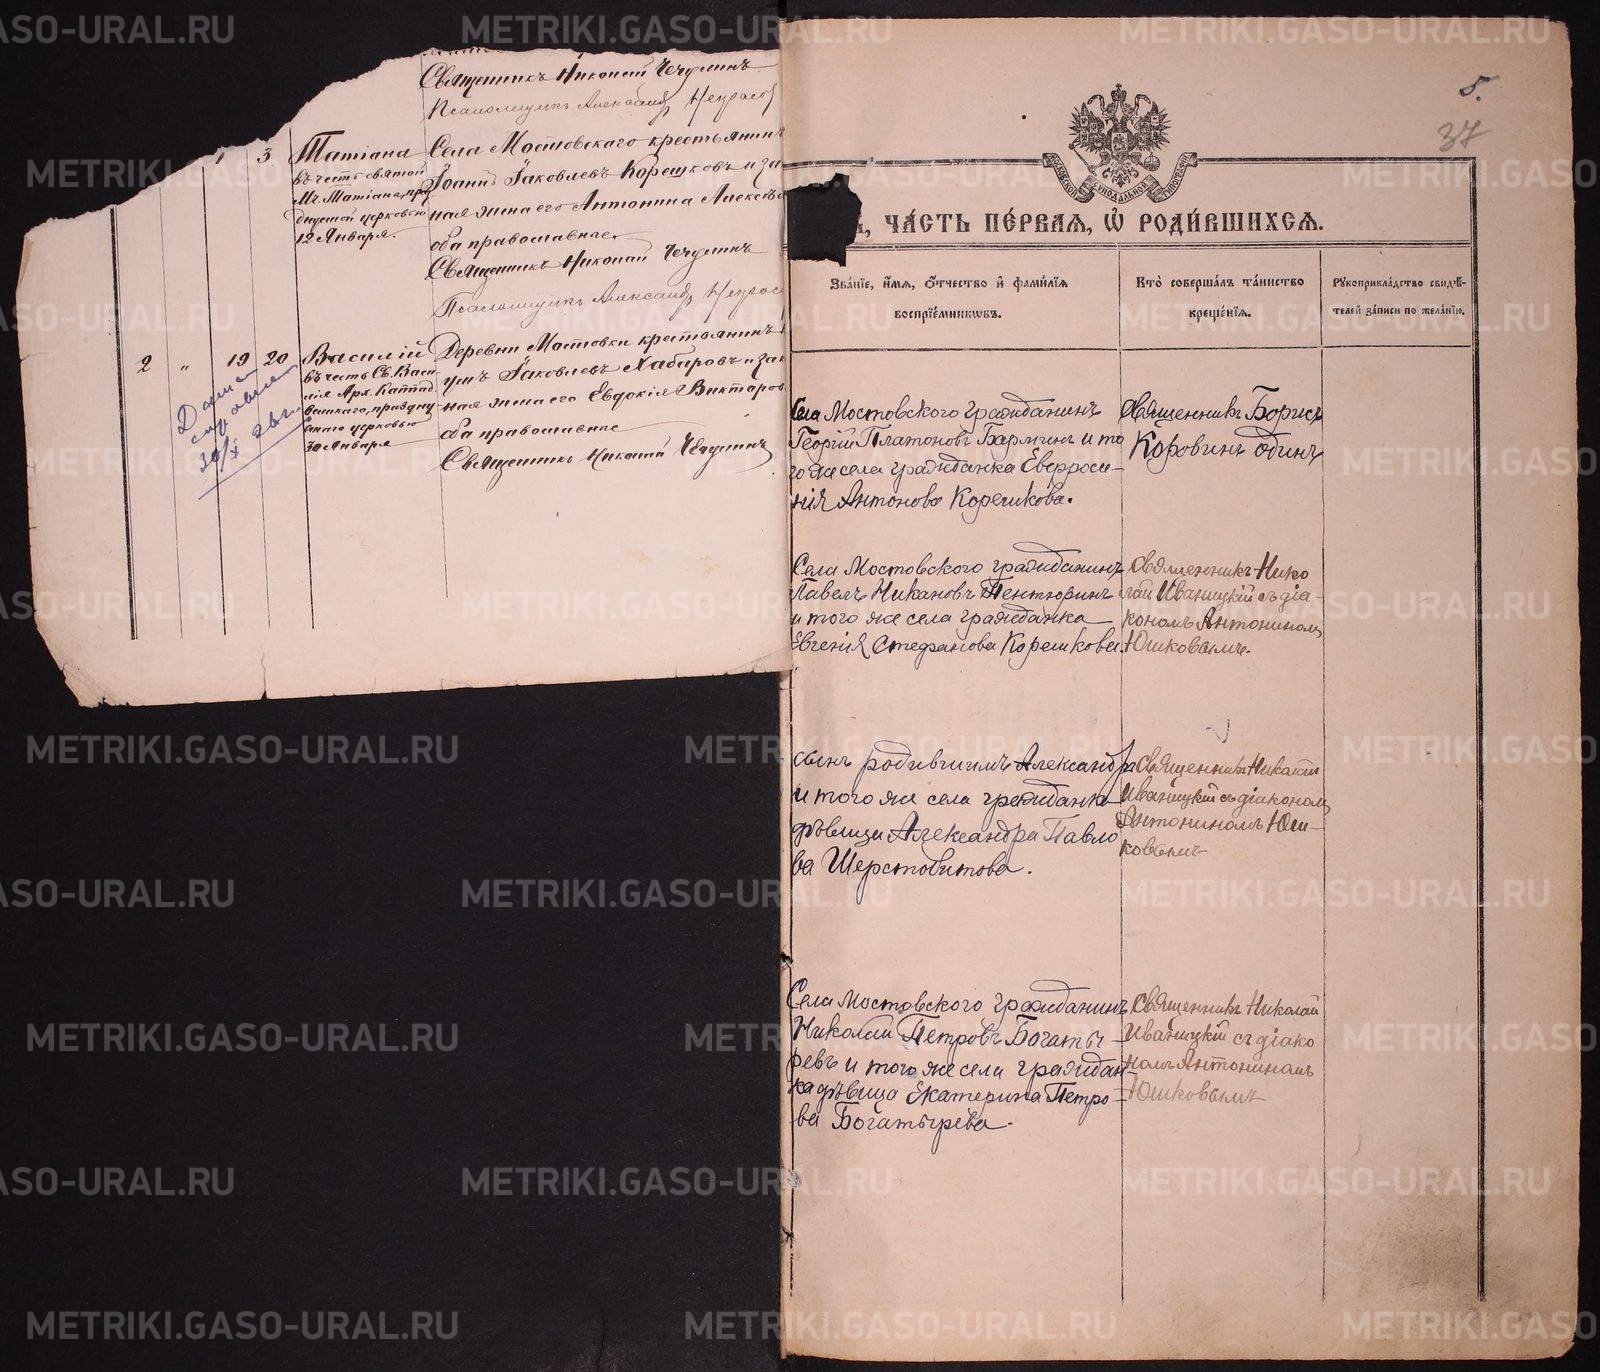 Священникъ Николай Чечулинъ
Псаломщикъ Александр Некрасов
1 3 Татіана
въ честь святой
Мч. Татіаны, пра
днуемой церковью
12 Января.
Села Мостовскаго крестьянин
Іоаннъ Іаковлевъ Корешковъ и за
ная жена его Антонина Алексѣев
оба православные.
Священникъ Николай Чечулинъ
Псаломщикъ Александр Некрасо
2 " 19 20 Василій
въ честь Св. Васи
лія Арх. Каппад
праздну
церковью
30 Января
Деревни Мостовки крестьянин
Іаковлевъ Хабаровъ и зак
ная жена его Евдокія Викторов
оба православные
Священникъ Николай Чечулинъ
Дана
справка
30/X
5.
37
МОСКОВСКОЙ СѴНОДАЛЬНОЙ ТИПОГРАФІИ
, ЧАСТЬ ПЕ́РВАЯ, Ѿ РОДИ́ВШИХСЯ.
Зва́нїе, и́мя, о́тчество и́ фами́лїя
воспрїе́мниковъ.
Кто̀ соверша́лъ та́инство
креще́нїя.
Рꙋкоприкла́дство свидѣ́-
телей за́писи по жела́нїю.
Села Мостовского гражданинъ
Георгій Платоновъ Бармин и то
го же села гражданка Евфроси-
нія Антонова Корешкова.
Священникъ Борис
Коровинъ один
Села Мостовского гражданинъ
Павелъ Никановъ Пентюринъ
и того же села гражданка
Евгенія Стефанова Корешкова.
Священникъ Нико
лай Иваницкій съ діа-
кономъ Антонином
Юшковымъ.
сынъ родившимъ Александра
и того же села гражданка
дѣвица Александра Павло
ва Шерстобитова.
Священникъ Николай
Иваницкій съ діаконом
Антониномъ Юш-
ковымъ
Села Мостовского гражданинъ
Николай Петровъ Богаты-
ревъ и того же села граждан-
ка дѣвица Екатерина Петро-
ва Богатырева.
Священникъ Николай
Иваницкій съ діако
номъ Антониномъ
Юшковымъ
METRIKI.GASO-URAL.RU